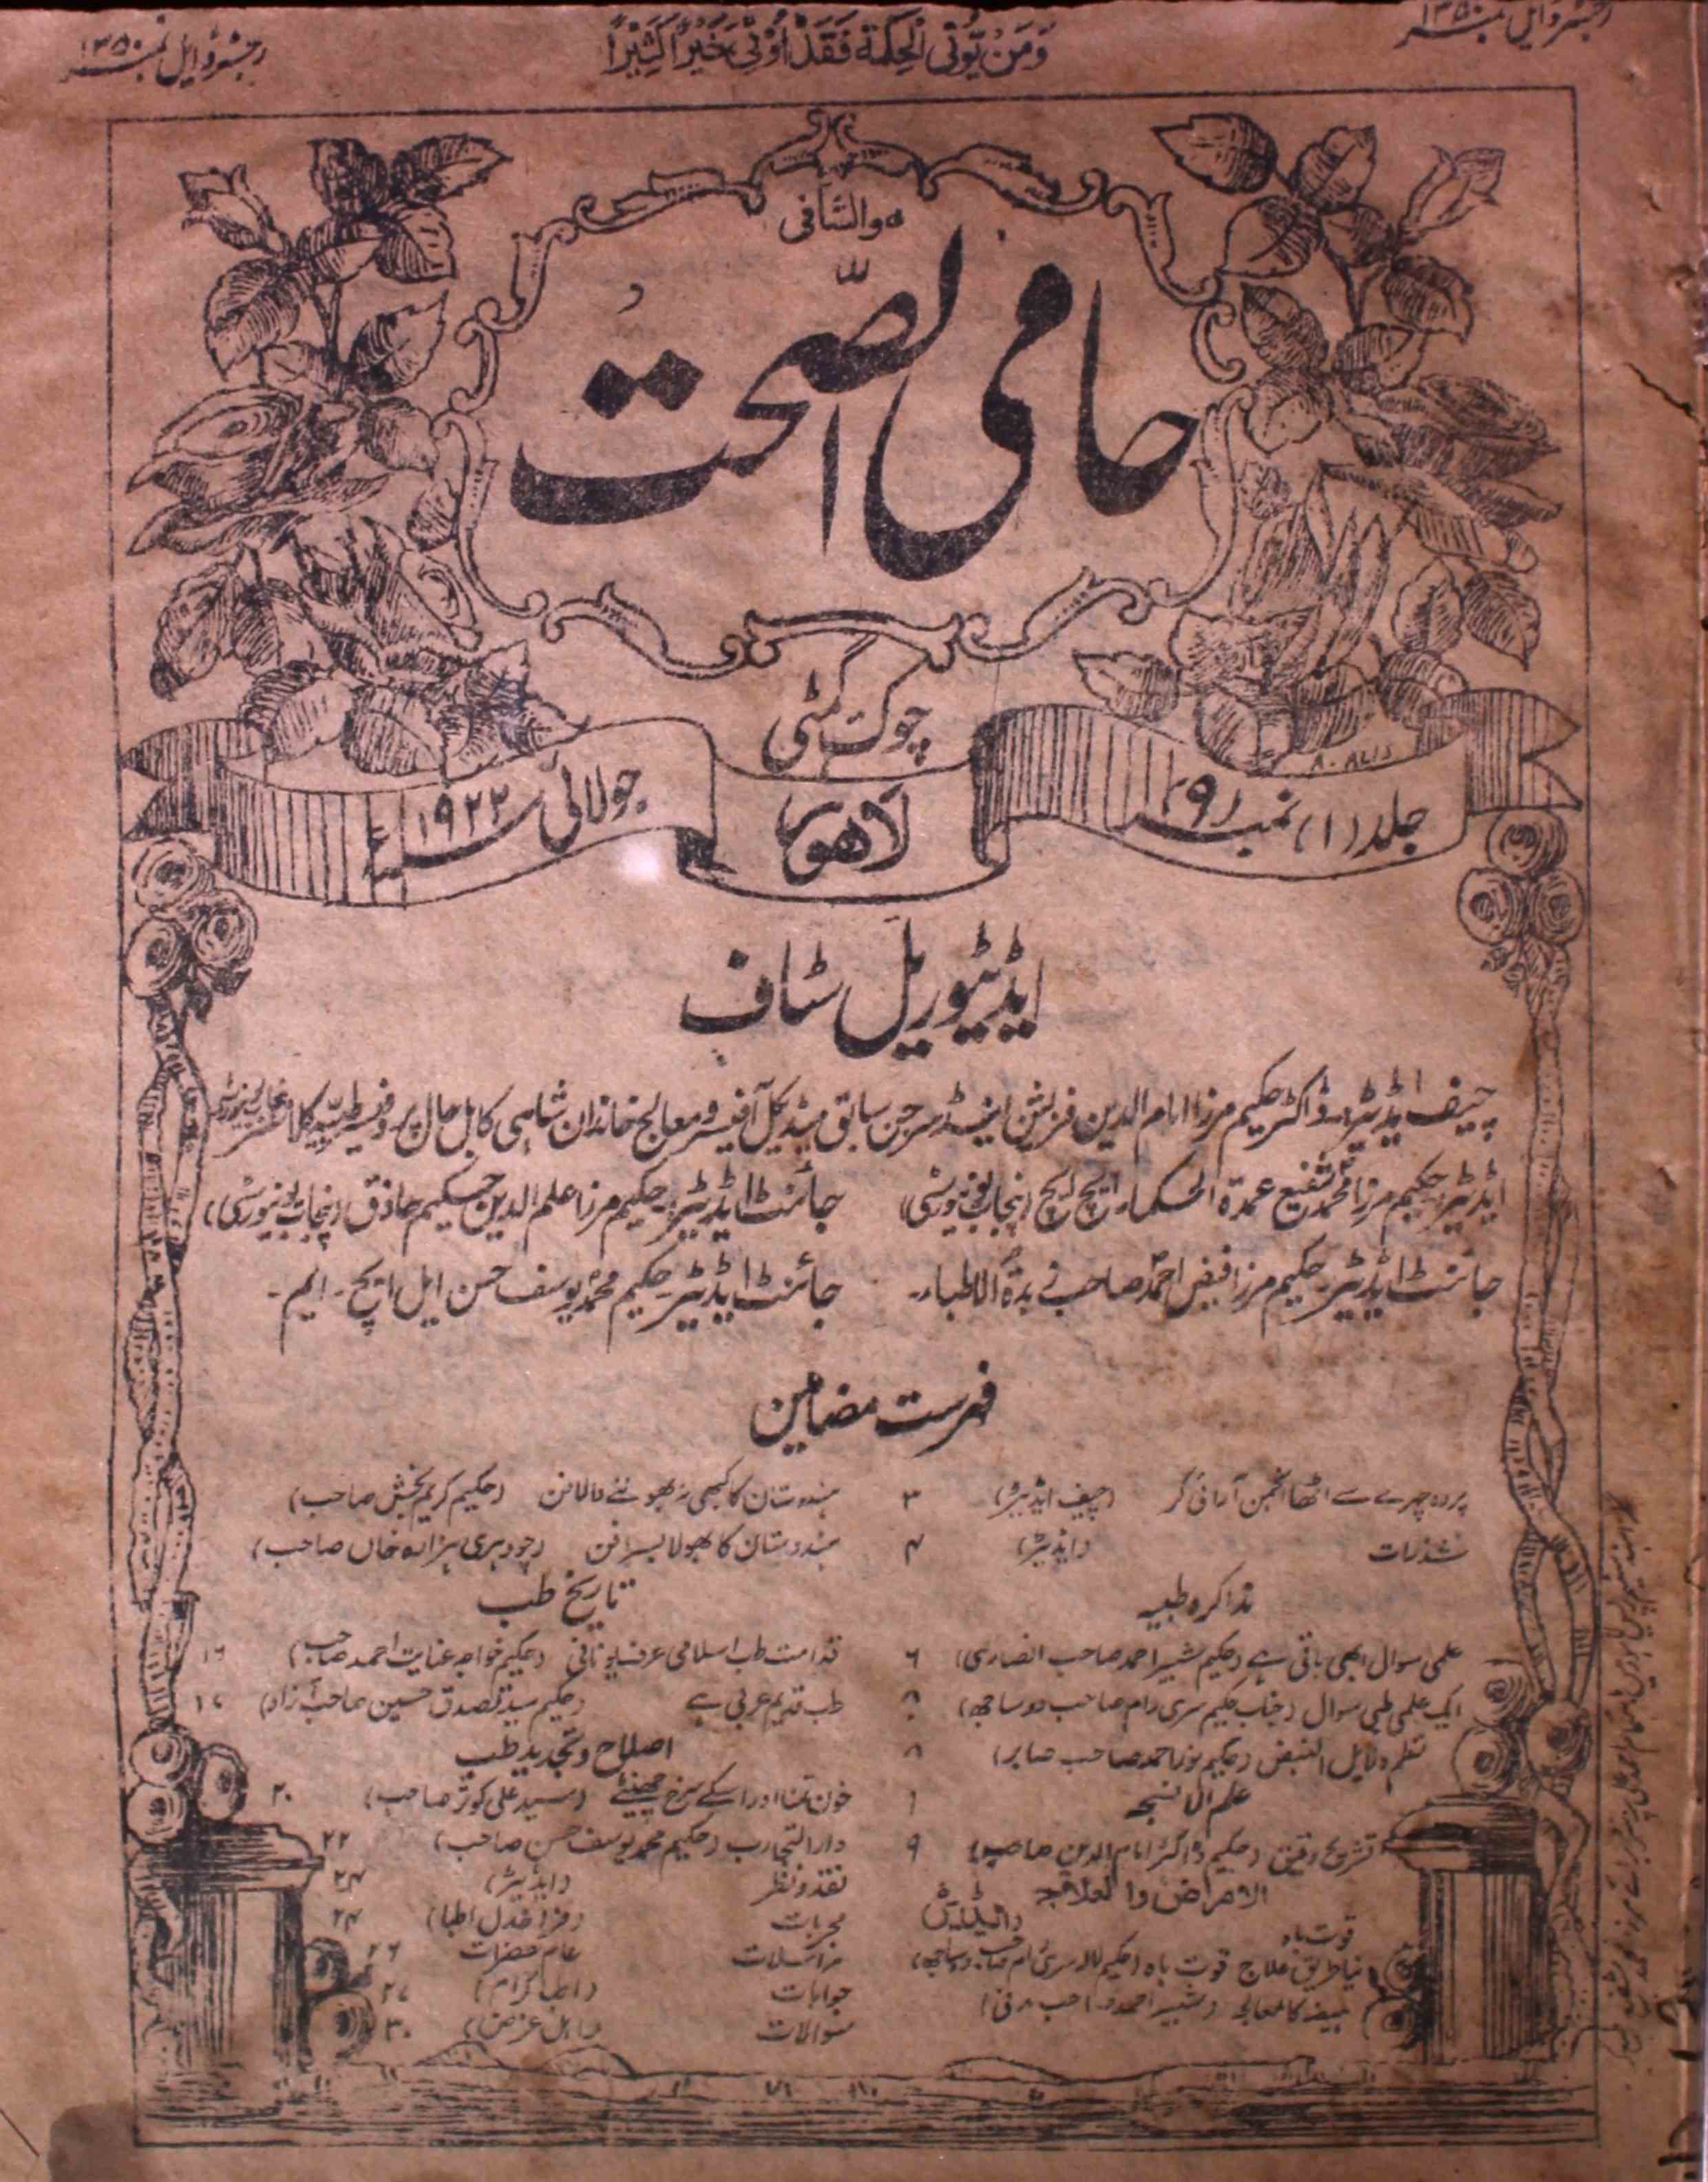 رجسٹرڈ ایل نمبر ۱۳۵۰
وَمَنْ یُّوْتَی الْحِکْمَةَ فَقَدْ اُوْتِیَ خَیْرًا کَثِیْرًا
رجسٹرڈ ایل نمبر ۱۳۵۰
ھوالشافی
حامی الصّحت
چوک متی
لاھور
جلد (۱) نمبر
جولائی سنہ ۱۹۲۲ء
ایڈیٹوریل سٹاف
چیف ایڈیٹر۔ ڈاکٹر حکیم مرزا امام الدین فزیشن اینڈ سرجن سابق میڈیکل آفیسر و معالج خاندان شاہی کابل حال پروفیسر طبیہ کلاسز
ایڈیٹر۔ حکیم مرزا محمد شفیع عمدۃ الحکماء ایچ پی ایچ (پنجاب یونیورسٹی)
جائنٹ ایڈیٹر۔ حکیم مرزا علم الدین حکیم حاذق (پنجاب یونیورسٹی)
جائنٹ ایڈیٹر۔ حکیم مرزا فیض احمد صاحب زبدۃ الاطباء۔
جائنٹ ایڈیٹر۔ حکیم محمد یوسف حسن ایل ایچ۔ ایم۔
فہرست مضامین
پردہ چہرے سے اٹھا انجمن آرائی کر (چیف ایڈیٹر) ۳
شذرات (ایڈیٹر) ۴
مذاکرہ طبیہ
علمی سوال ابھی باقی ہے (حکیم شبیر احمد صاحب انصاری) ۶
ایک علمی طبی سوال (جناب حکیم سری رام صاحب دوساجھ) ۸
نظم دلایل النبض (حکیم نور احمد صاحب صابر) ۸
علم الانسجہ
تشریح دقیق (حکیم ڈاکٹر امام الدین صاحب) ۹
الامراض والعلاج
قوت باہ
نیا طریق علاج قوت باہ (حکیم لالہ سری رام صاحب دوساجھ)
ہیضہ کا معالجہ (شبیر احمد صاحب)
ہندوستان کا کبھی نہ بھولنے والا فن (حکیم کریم بخش صاحب)
ہندوستان کا بھولا بسرا فن (چودہری ہزارہ خاں صاحب)
تاریخ طب
قدامت طب اسلامی عرف یونانی (حکیم خواجہ عنایت احمد صاحب) ۱۶
طب قدیم عربی ہے (حکیم سید تصدق حسین صاحب آزاد) ۱۷
اصلاح و تجدید طب
خون تمنا اور اسکے سرخ چھینٹے (سید علی کوثر صاحب) ۲۰
دارالتجارب (حکیم محمد یوسف حسن صاحب) ۲۲
نقد و نظر (ایڈیٹر) ۲۴
مجربات ۲۴
مراسلات عام حضرات ۲۶
جوابات (اطبا کرام) ۲۷
سوالات (اہل غرض) ۳۰